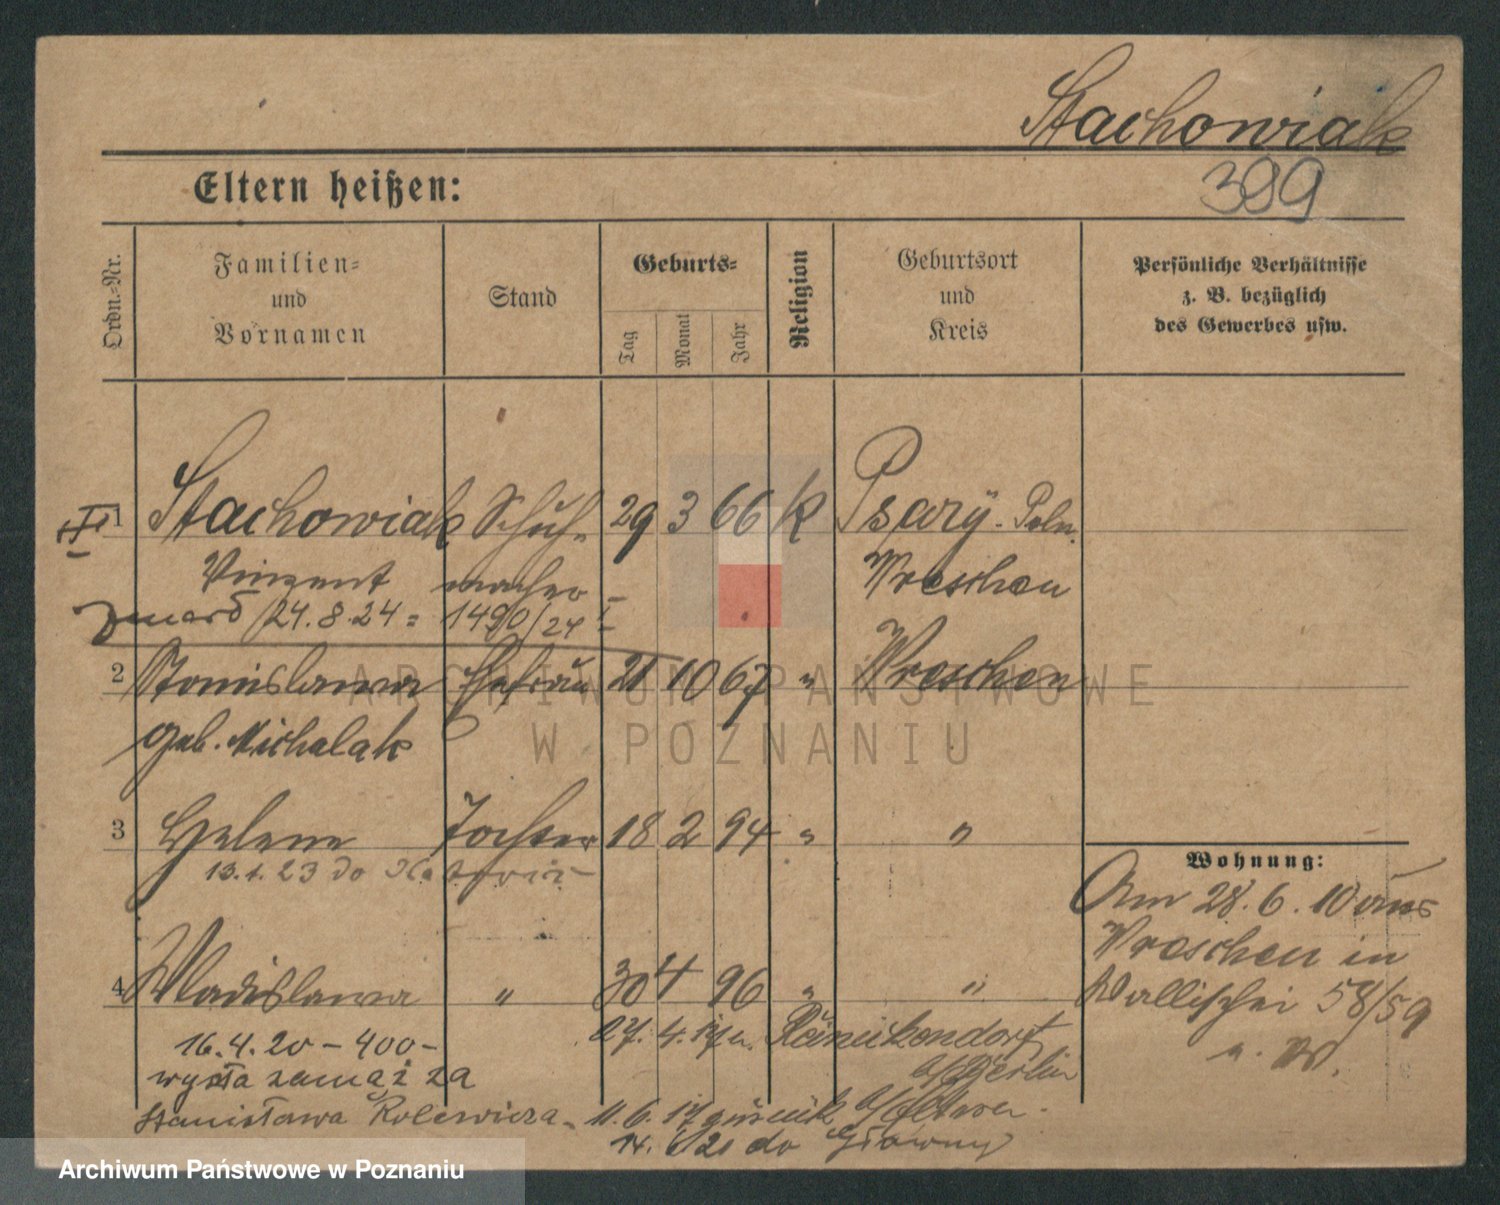 Stachowiak
399
Eltern heißen:
Ordn.-Nr.
Familien-
und
Vornamen
Stand
Geburts-
Tag
Monat
Jahr
Religion
Geburtsort
und
Kreis
Persönliche Verhältnisse
z. B. bezüglich
des Gewerbes usw.
1 Stachowiak Schuh- 29 3 66 k Psary-Poln.
Vinzent macher Wreschen
zmarł 24.8.24 = 1490/24 I
2 Stanislawa Ehefrau 21 10 67 " Wreschen
geb. Michalak
3 Helene Tochter 18 2 94 " "
13.1.23 do
Wohnung:
Am 28.6.10 aus
Wreschen in
Wallischei 58/59
4 Wladislawa " 30 4 96 " "
27.4.17 n. Reinickendorf
16.4.20 - 400 -
b/Berlin
wyszła zamąż za
Stanisława Rolewicza - 11.6.17 zurück
14.6 21 do Główny
ARCHIWUM PAŃSTWOWE
W POZNANIU
Archiwum Państwowe w Poznaniu